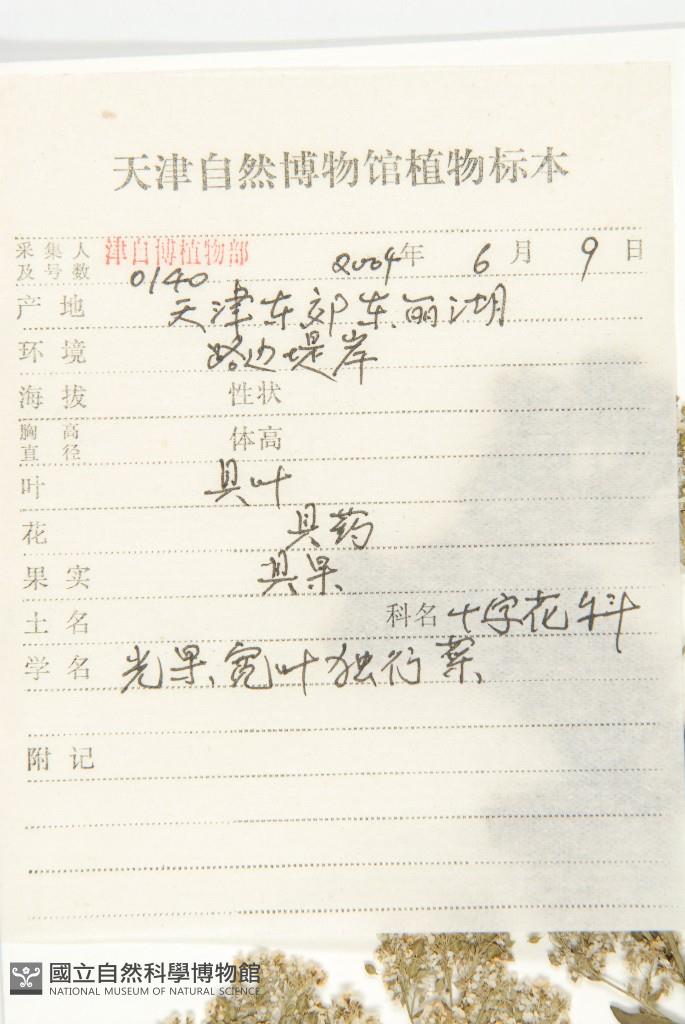 天津自然博物馆植物标本
采集人及号数 津自博植物部 0140 2004年 6月 9日
产地 天津东郊东丽湖
环境 路边堤岸
海拔 性状
胸高直径 体高
叶 具叶
花 具药
果实 具果
土名 科名 十字花科
学名 光果宽叶独行菜
附记
國立自然科學博物館
NATIONAL MUSEUM OF NATURAL SCIENCE